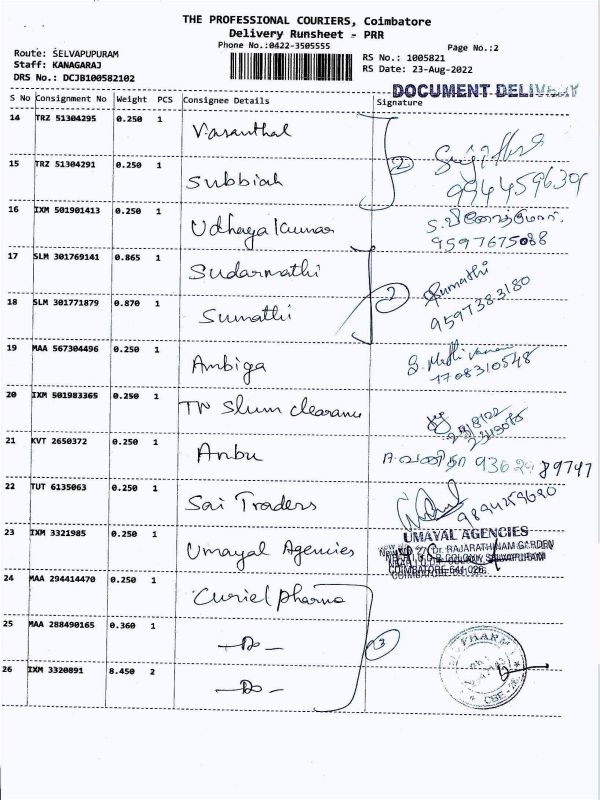 THE PROFESSIONAL COURIERS, Coimbatore
Delivery Runsheet - PRR
Phone No.:0422-3505555
Page No.:2
Route: SELVAPUPURAM
Staff: KANAGARAJ
DRS No.: DCJB100582102
RS No.: 1005821
RS Date: 23-Aug-2022
DOCUMENT DELIVERY
S No Consignment No Weight PCS Consignee Details Signature
14 TRZ 51304295 0.250 1 Vasanthal
15 TRZ 51304291 0.250 1 Subbiah 2 9944596309
16 IXM 501901413 0.250 1 Udhaya Kumar 9597675088
17 SLM 301769141 0.865 1 Sudarmathi
18 SLM 301771879 0.870 1 Sumathi 2 Sumathi 9597383180
19 MAA 567304496 0.250 1 Ambiga 1708310548
20 IXM 501983365 0.250 1 TN Slum clearance
21 KVT 2650372 0.250 1 Anbu A. வனிதா 93629 89747
22 TUT 6135063 0.250 1 Sai Traders 9894259690
23 IXM 3321985 0.250 1 Umayal Agencies UMAYAL AGENCIES
Dr. RAJARATHINAM GARDEN
COIMBATORE-641 026.
24 MAA 294414470 0.250 1 Curiel pharma
25 MAA 288490165 0.360 1 -Do- 3
26 IXM 3320891 8.450 2 -Do-
CBE-26